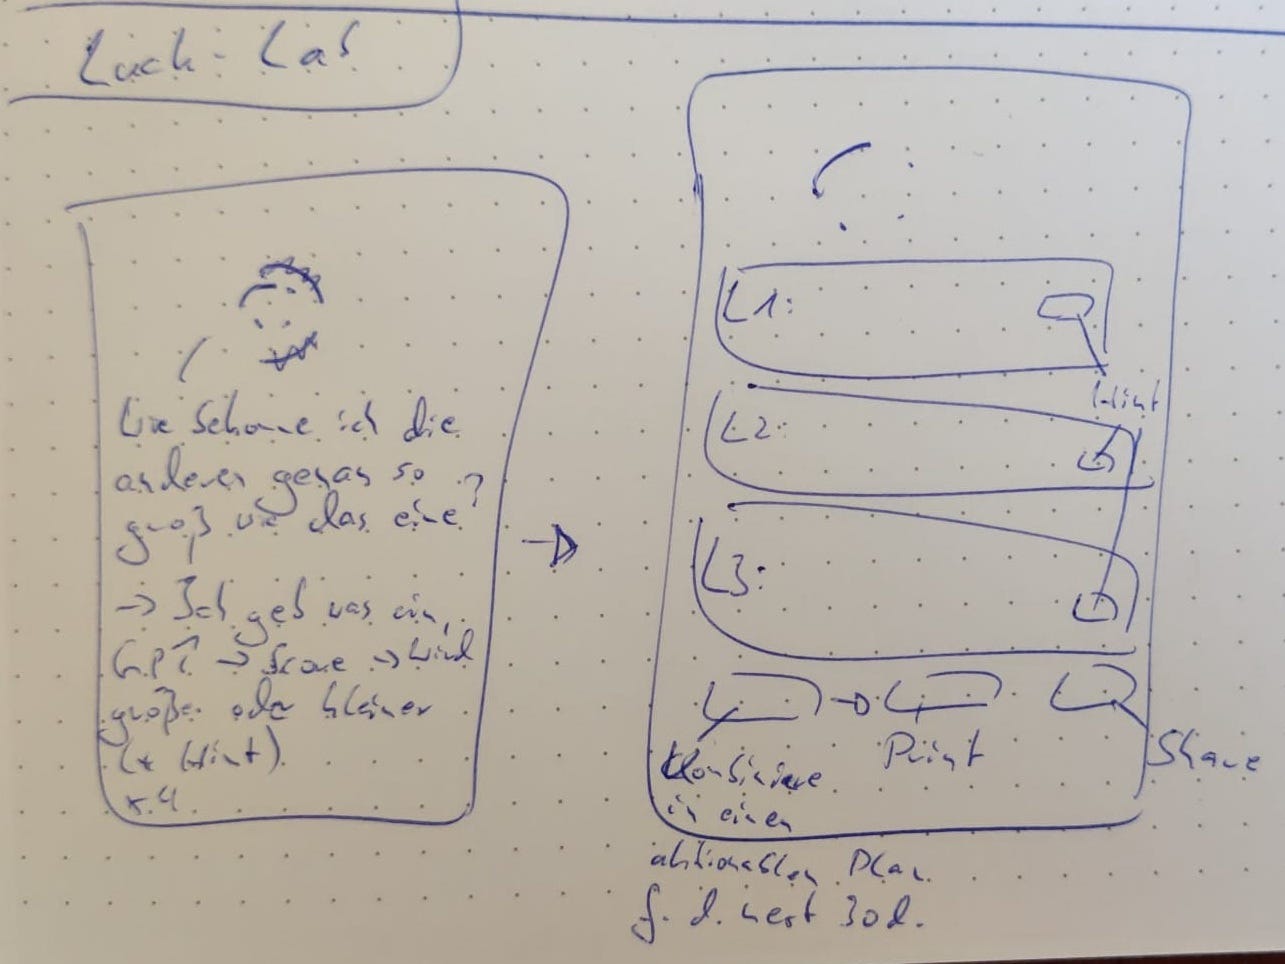 Luck-Lab
Wie Schaue ich die
anderen genau so
groß wie das eine?
→ Ich geb was ein,
GPT → Score → wird
größer oder kleiner
(+ Hint)
x 4
L1:
Hint
L2:
L3:
Kombiniere
in einen
aktionablen Plan
f. d. next 30d.
Print
Share